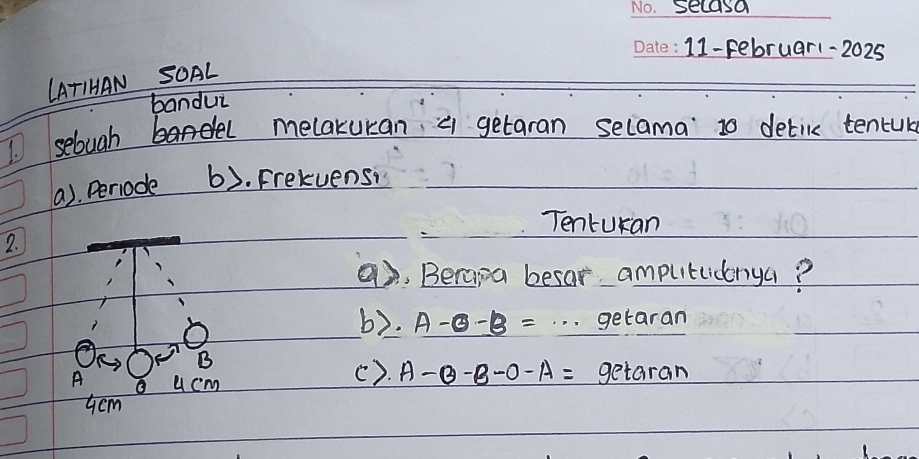 No. Selasa
Date: 11-Februari-2025
LATIHAN SOAL
bandul
1. sebuah bandel melakukan 4 getaran selama 10 detik tentuk
a). Periode b). Frekuensi
2. Tentukan
a). Berapa besar amplitudonya?
b). A-O-B = ... getaran
c). A-O-B-O-A = getaran
A O B
4cm 4cm